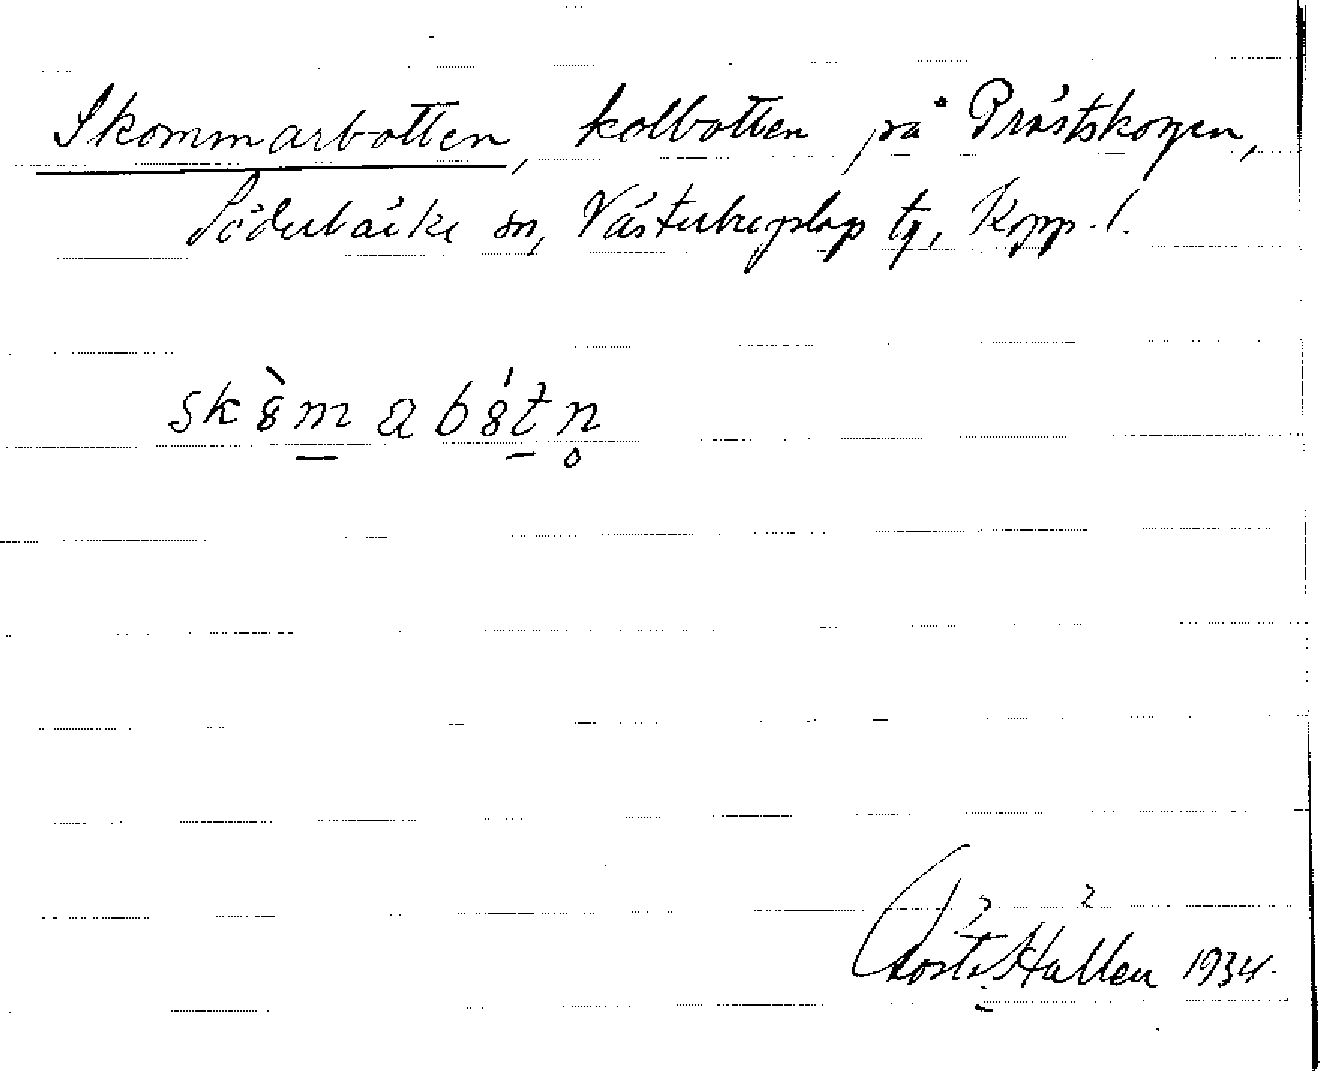 Skommarbotten, kolbotten på Prästskogen,
Söderbärke sn, Västerbergslags tg, Kopp. l.
skò̈mabó̈tn̥
Gösta Hallén 1934.